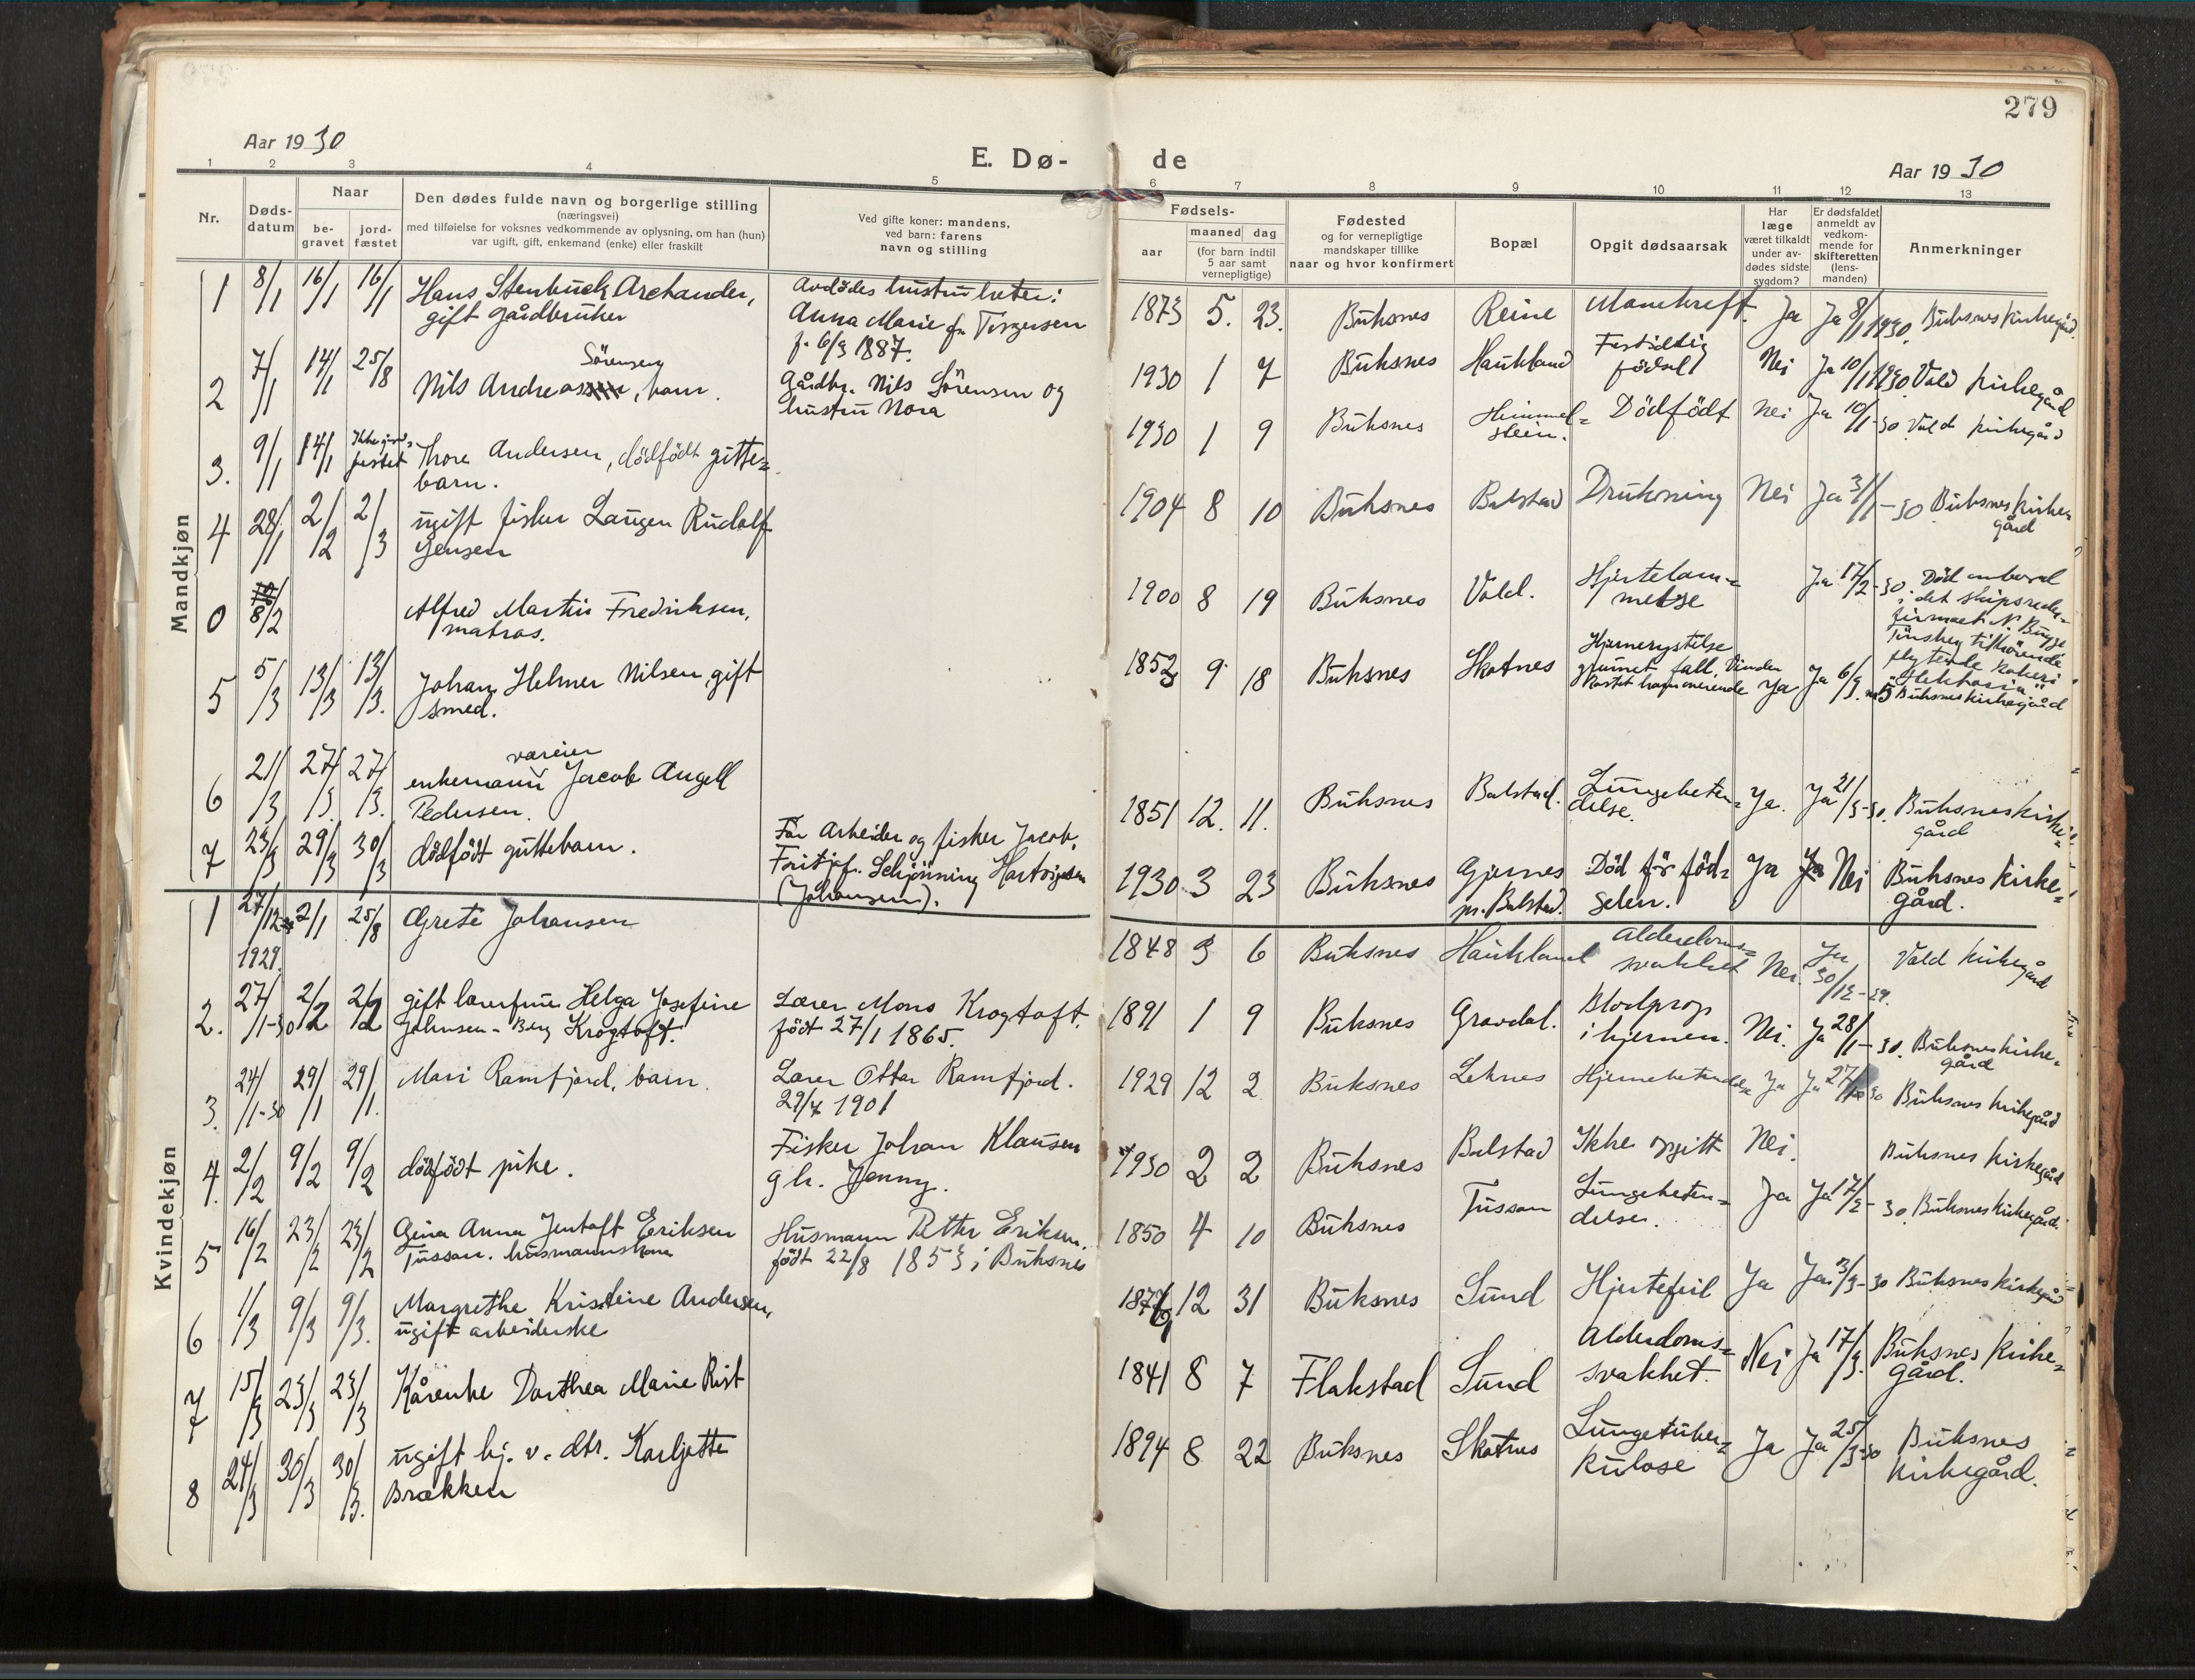 279
Aar 1930
E. Dø-
de
Aar 1930
1 2 3 4 5
6 7 8 9 10 11 12 13
Nr.
Døds-
datum
Naar
be-
gravet
jord-
fæstet
Den dødes fulde navn og borgerlige stilling
(næringsvei)
med tilføielse for voksnes vedkommende av oplysning, om han (hun)
var ugift, gift, enkemand (enke) eller fraskilt
Ved gifte koner: mandens,
ved barn: farens
navn og stilling
Fødsels-
aar
maaned dag
(for barn indtil
5 aar samt
vernepligtige)
Fødested
og for vernepligtige
mandskaper tillike
naar og hvor konfirmert
Bopæl
Opgit dødsaarsak
Har
læge
været tilkaldt
under av-
dødes sidste
sygdom?
Er dødsfaldet
anmeldt av
vedkom-
mende for
skifteretten
(lens-
manden)
Anmerkninger
Mandkjøn
1 8/1 16/1 16/1
Hans Stenbuck Archander,
gift gårdbruker
Avdödes hustru heter:
Anna Marie f. Torgersen
f. 6/9 1887.
1873 5. 23. Buksnes Reine Mavekreft. Ja Ja 8/1 1930. Buksnes kirkegård.
2 7/1 14/1 25/8
Sörensen
Nils Andreas, barn.
Gårdbr. Nils Sörensen og
hustru Nora
1930 1 7 Buksnes Haukland
Fortidlig
födsel
Nei Ja 10/1 1930 Vold kirkegård
3. 9/1 14/1
Ikke jord-
festet
Thore Andersen, dödfödt gutte=
barn.
1930 1 9 Buksnes
Himmel=
stein.
Dödfödt Nei Ja 10/1-30 Vold kirkegård
4 28/1 2/2 2/3
ugift fisker Laugen Rudolf
Jensen
1904 8 10 Buksnes Balstad Drukning Nei Ja 31/1-30
Buksnes kirke=
gård
0 8/2
Alfred Martin Fredriksen,
matros.
1900 8 19 Buksnes Vold.
Hjertelam=
melse
Ja 17/2-30.
Död ombord
i det skipsrede=
firmaet N. Bugge
Tönsberg tilhörende
flytende kokeri
5 5/3 13/3 13/3.
Johan Helmer Nilsen, gift
smed.
1853 9 18 Buksnes Skotnes
Hjernerystelse
grunnet fall. Vinden
kastet ham
Ja Ja 6/3. Buksnes kirkegård
6 21/3 27/3. 27/3.
væreier
enkemann Jacob Angell
Pedersen.
1851 12. 11. Buksnes Balstad.
Lungebeten=
delse.
Ja. Ja 21/3-30.
Buksnes kirke=
gård
7 23/3 29/3 30/3
dödfödt guttebarn.
Far Arbeider og fisker Jacob,
Fritjof. Schjönning Hartvigsen
(Johansen).
1930 3 23 Buksnes
Gjernes
pr. Balstad.
Död för föd=
selen.
Ja Nei
Buksnes kirke=
gård.
Kvindekjøn
1 27/12 2/1 25/8
1929.
Grete Johansen
1848 3 6 Buksnes Haukland
Alderdoms=
svakhet
Nei. Ja
30/12-29.
Vold kirkegård
2. 27/1-30 2/2 2/2
gift lærerfrue Helga Josefine
Johnsen - Berg Krogtoft.
Lærer Mons Krogtoft.
födt 27/1 1865.
1891 1 9 Buksnes Gravdal.
Blodprop
i hjernen.
Nei. Ja 28/1-30.
Buksnes kirke=
gård
3. 24/1-30 29/1 29/1.
Mari Ramfjord, barn.
Lærer Ottar Ramfjord.
29/7 1901
1929 12 2 Buksnes Leknes Hjernebetendelse Ja Ja 27/1 30 Buksnes kirkegård
4. 2/2 9/2 9/2
dödfödt pike.
Fisker Johan Klausen
g h. Jenny.
1930 2 2 Buksnes Balstad Ikke opgitt Nei. Buksnes kirkegård
5 16/2 23/2 23/2
Gina Anna Jentoft Eriksen
Tussan. husmannskone
Husmann Petter Eriksen.
födt 22/8 1853 i Buksnes
1850 4 10 Buksnes Tussan
Lungebeten=
delse.
Ja Ja 17/2-30. Buksnes kirkegård
6 1/3 9/3 9/3.
Margrethe Kristine Andersen,
ugift arbeiderske
12 31 Buksnes Sund Hjertefeil Ja Ja 3/3-30 Buksnes kirkegård
7 15/3 23/3 23/3
Kårenke Dorthea Marie Rist
1841 8 7 Flakstad Sund
Alderdoms=
svakhet.
Nei Ja 17/3.
Buksnes kirke=
gård.
8 24/3 30/3 30/3.
ugift hj. v. dtr. Karljotte
Brækken
1894 8 22 Buksnes Skotnes
Lungetuber=
kulose
Ja Ja 25/3-30
Buksnes
kirkegård.